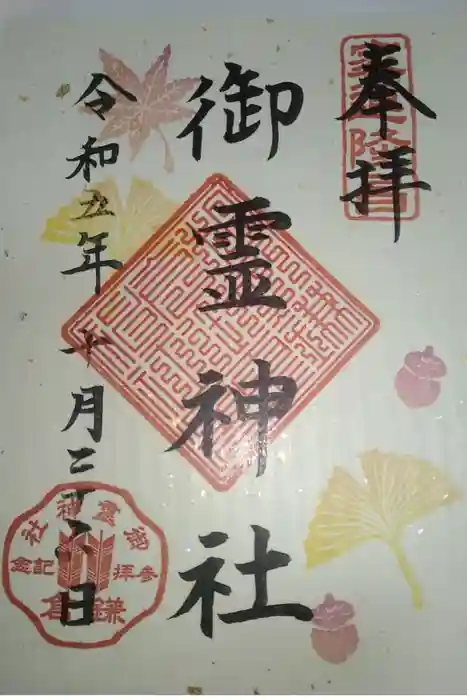 奉拝
御霊神社
令和五年十月二十八日
御霊神社
参拝記念
鎌倉